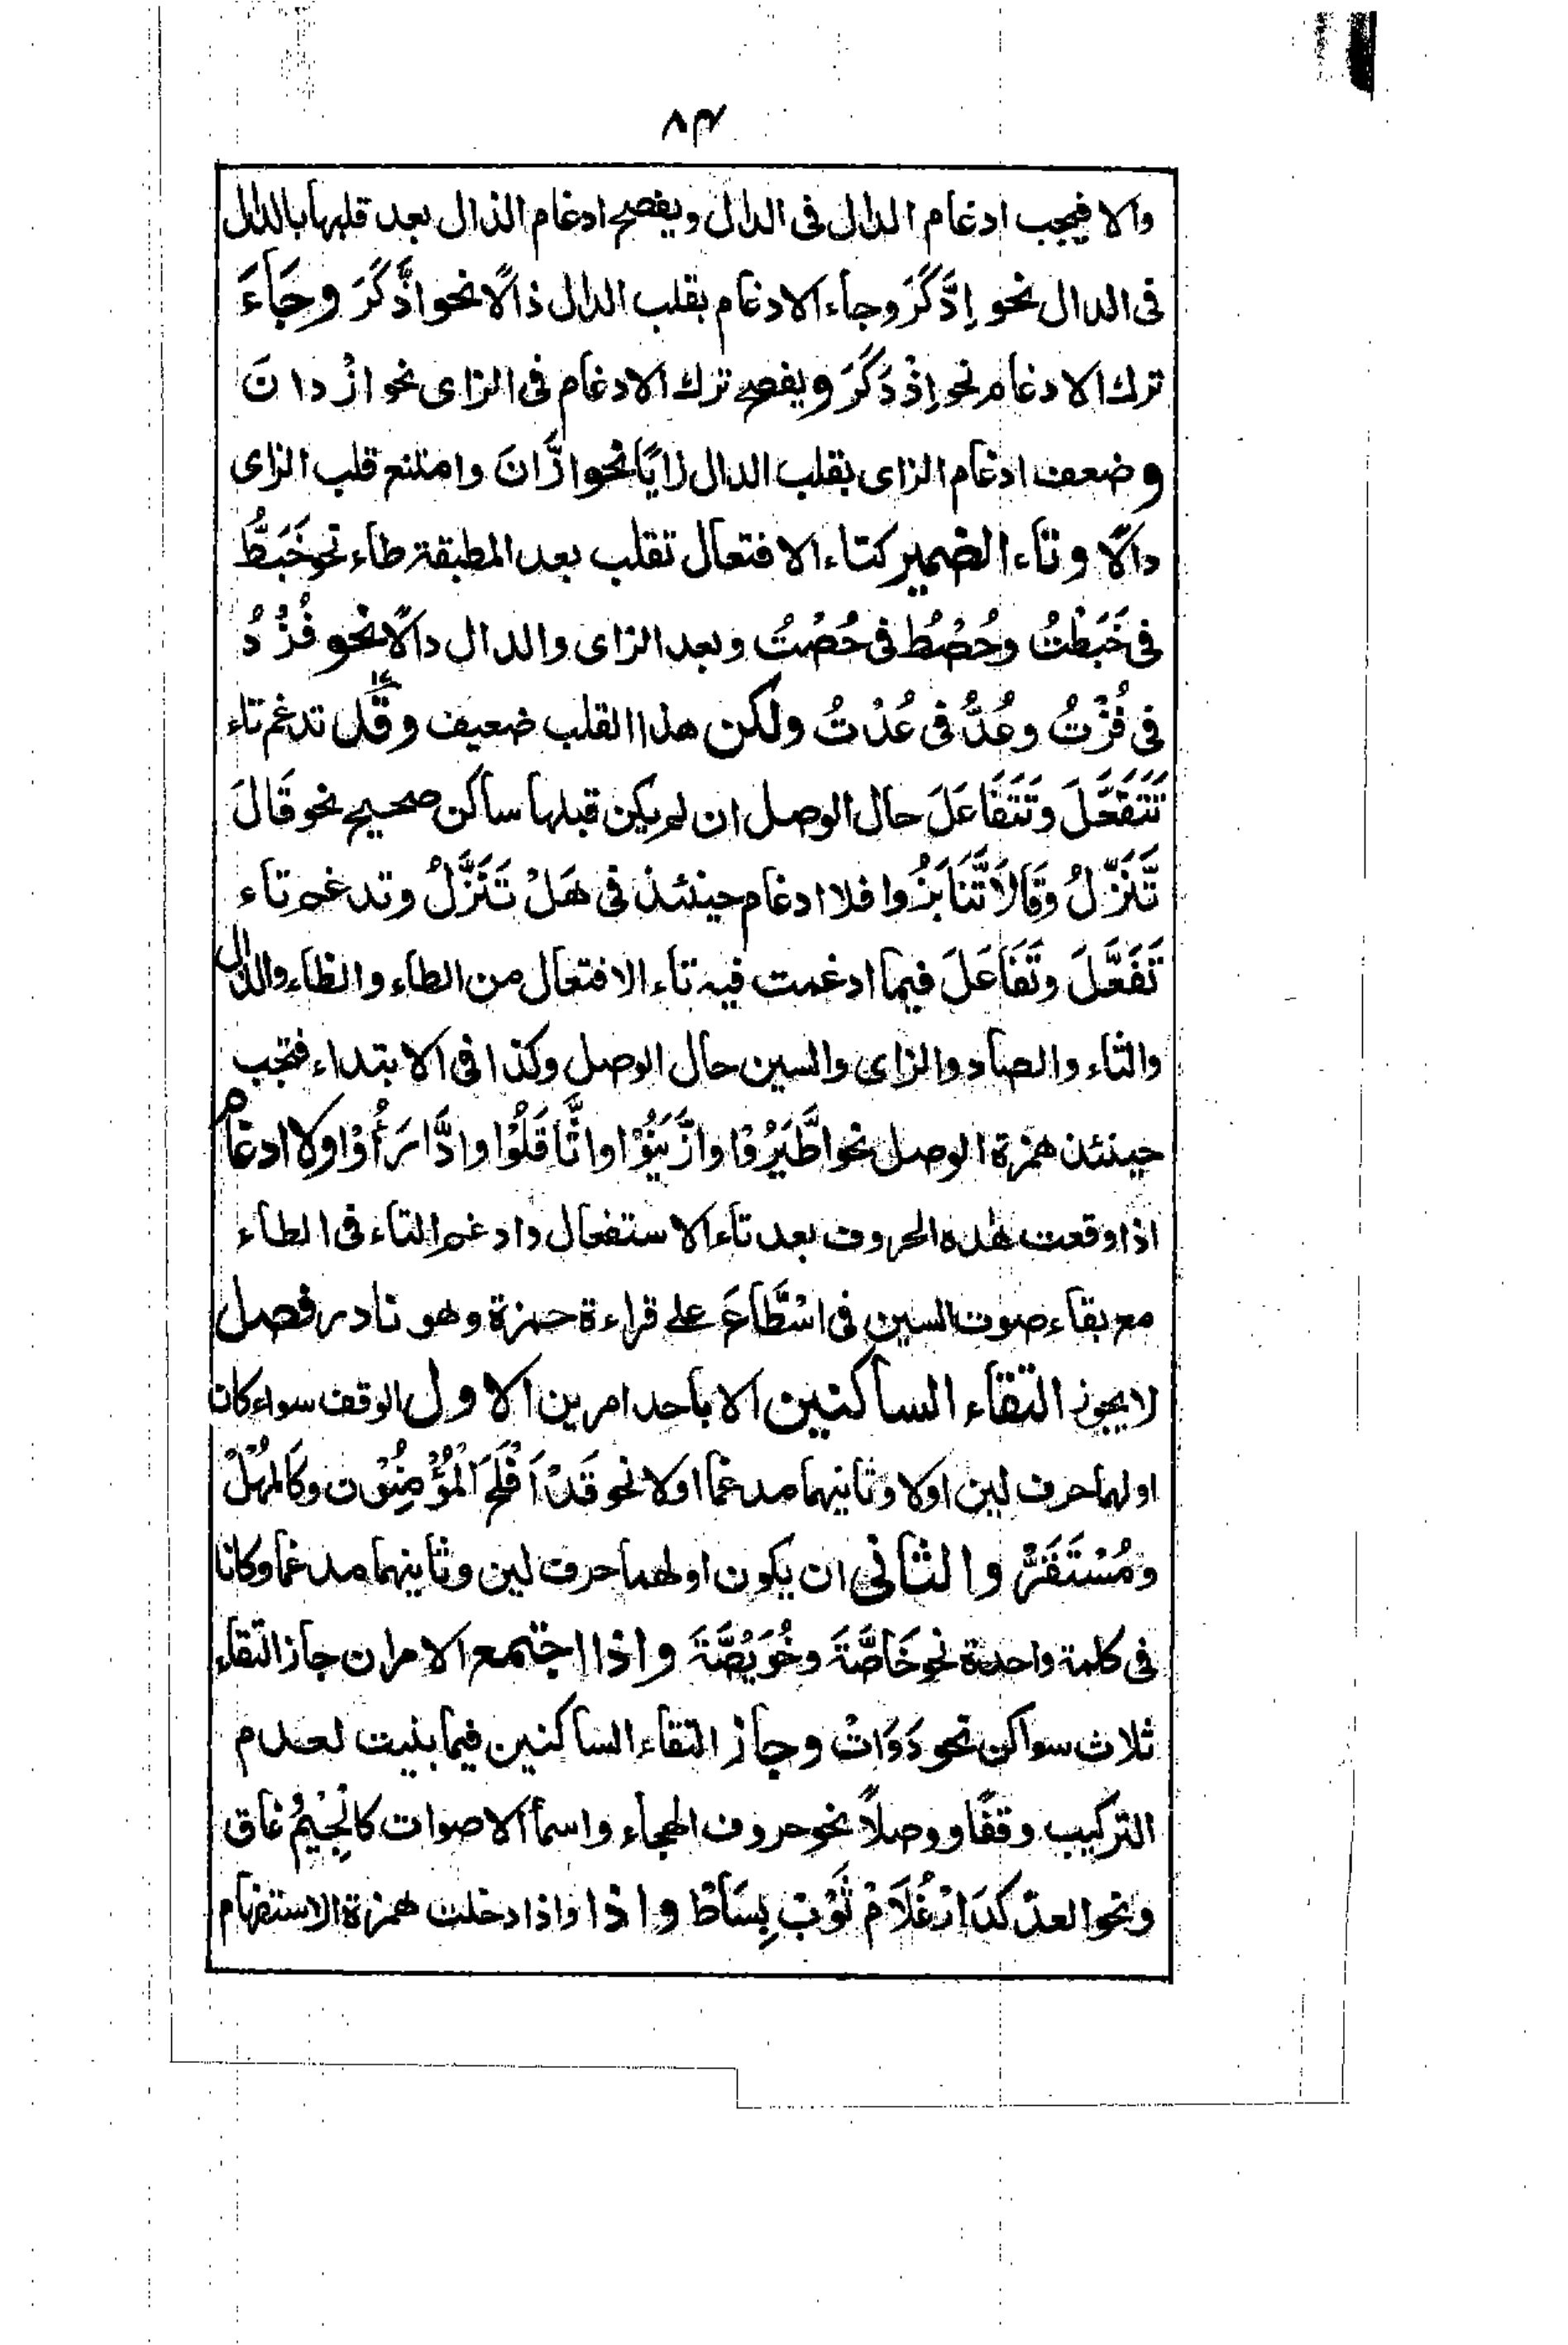 ٨٣
والا فيجب ادغام الدال فى الدال ويفصح ادغام الذال بعد قلبها بالدال
فى الدال نحو اِدَّكَرَ وجاء الادغام بقلب الدال ذالًا نحو اذَّكَرَ وجَاءَ
ترك الادغام نحو اِذْدَكَرَ ويفصح ترك الادغام فى الزاى نحو ازْدانَ
وضعف ادغام الزاى بقلب الدال زايًا نحو ازَّانَ وامتنع قلب الزاى
دالًا وتاء الضمير كتاء الافتعال تقلب بعد المطبقة طاء نحو خَبَطُّ
فى خَبَطْتُ وحُصْطُ فى حُصْتُ وبعد الزاى والدال دالًا نحو فُزْدُ
فى فُزْتُ وعُدُّ فى عُدْتُ ولكن هذا القلب ضعيف وقَلَّ تدغم تاء
تَتَفَعَّلَ وتَتَفَاعَلَ حال الوصل ان لم يكن قبلها ساكن صحيح نحو قَالَ
تَّنَزَّلُ وَقَالَا تَّنَابَزُوا فلا ادغام حينئذ فى هَلْ تَنَزَّلُ وتدغم تاء
تَفَعَّلَ وتَفَاعَلَ فيما ادغمت فيه تاء الافتعال من الطاء والظاء والدال
والثاء والصاد والزاى والسين حال الوصل وكذا فى الابتداء فتجب
حينئذ همزة الوصل نحو اطَّيَرُوْا وازَّيَّنُوْا واثَّاقَلُوْا وادَّارَأُوْا ولا ادغام
اذا وقعت هذه الحروف بعد تاء الاستفعال وادغم التاء فى الطاء
مع بقاء صوت السين فى اسْطَّاعَ على قراءة حمزة وهو نادر فصل
لا يجوز التقاء الساكنين الا باحد امرين الاول الوقف سواء كان
اولهما حرف لين اولا وثانيهما مدغما اولا نحو قَدْ اَفْلَحَ الْمُؤْمِنُوْن وكَالْمُهْلْ
ومُسْتَقَرّْ والثانى ان يكون اولهما حرف لين وثانيهما مدغما وكانا
فى كلمة واحدة نحو خَاصَّةَ وخُوَيْصَّةَ واذا اجتمع الامران جاز التقاء
ثلاث سواكن نحو دَوَابّْ وجاز التقاء الساكنين فيما بنيت لعدم
التركيب وقفًا ووصلاً نحو حروف الهجاء واسما الاصوات كالْجِيْمُ غاق
ونحو العدّ كدَارْ غُلَامْ ثَوْبْ بِسَاطْ واذا واذا دخلت همزة الاستفهام